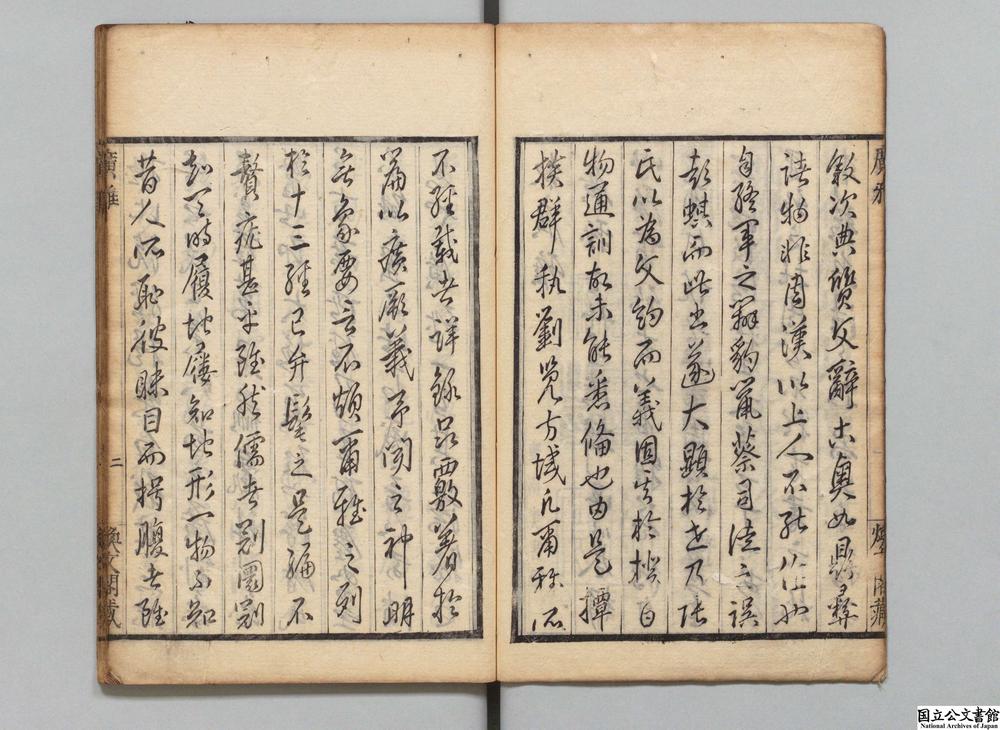 敘次典質父辭古奧如鼎彝
諸物非周漢以上人不能作也
自終軍之辯豹鼠蔡司徒之誤
彭蜞而此書遂大顯於世乃張
氏以為父約而義固其於揆自
物通訓故未能悉備也由是撢
揆群執劉覽方域凡爾雅所
不經載者詳錄品覈著於
篇以廣厥義予聞之神明
象要言不煩爾雅之列
於十三經已弁髦之是編不
贅疣甚乎雖然儒者冠圜冠
知天時履地屨知地形一物不知
昔人所恥彼眛目而捫腹者雖
廣雅
廣雅
二
煥文閣藏
国立公文書館
National Archives of Japan